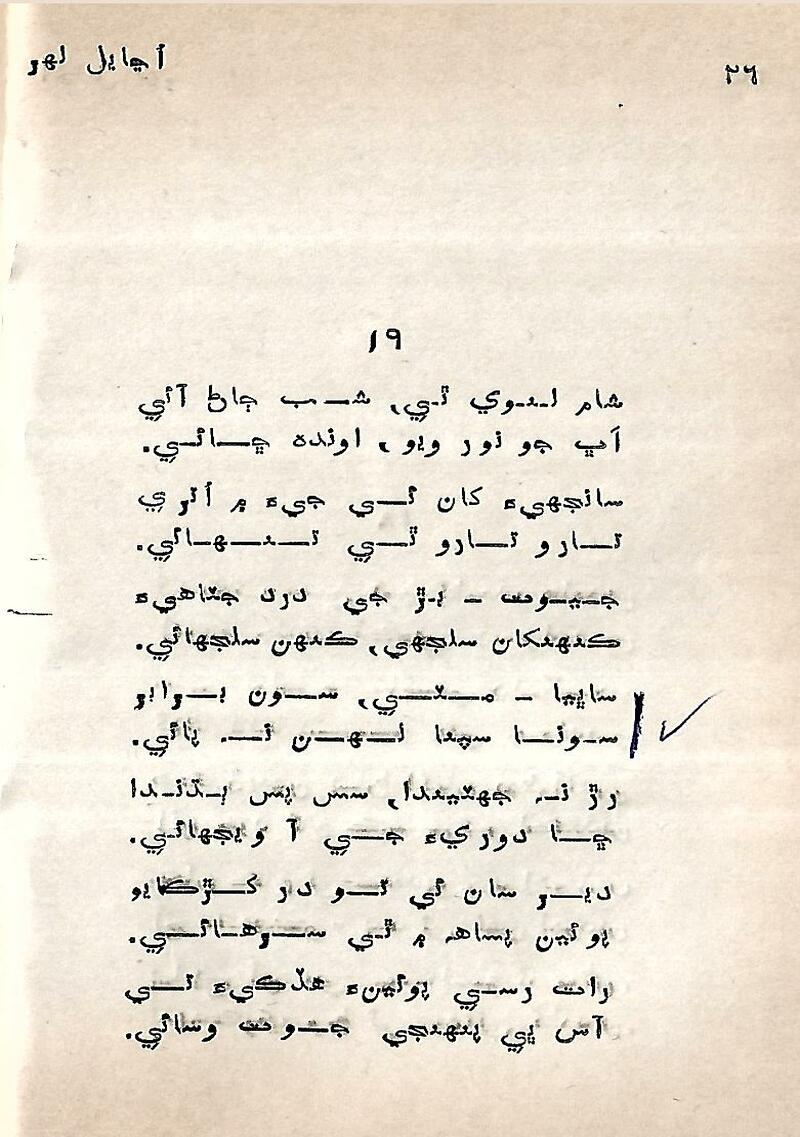 اڃايل لهر
٢٦
١٩
شام لنوي ٿي، شب ڄاڻ آئي
اَڀ جو نور ويو، اونده ڇائي.
سانجهيءَ کان ئي جيءَ ۾ اُتري
تارو تارو ٿي تنهائي.
جيوت - بڙ جي درد جٽاهيءَ
ڪنهنکان سلجهي، ڪنهن سلجهائي.
ساڀيا - مٽي، سون برابر
سونا سپنا لهن نہ پائي.
رڙ نہ جهٽيندا، سس پس ٻڌندا
ڇا دوريءَ جي آ ويجهائي.
دير سان ئي تو در کڙڪايو
پوئين پساهہ ۾ ٿي سرهائي.
رات رسي پوئينءَ هڏڪيءَ تي
آس ڀي پنهنجي جوت وسائي.